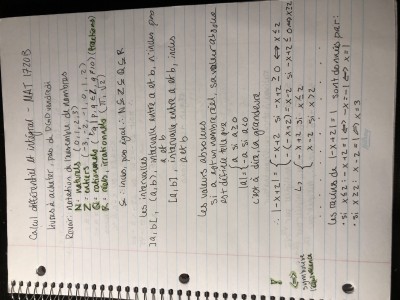 Calcul différentiel et intégral - MAT 1720B
livres à acheter : pas de DGD mardi
Revoir notation d'ensemble de nombres
N : naturels (0,1,2,3)
Z : entiers (-2,-1,0,1,2)
Q : rationnels (p/q | p,q ∈ Z, q≠0) (fractions)
R : réels, irrationnels (π, √2)
⊆ : inclus, pas égal : N ⊆ Z ⊆ Q ⊆ R
Les intervalles
]a,b[, (a,b), intervalle entre a et b, n'inclus pas
a et b
[a,b], intervalle entre a et b, inclus
a et b
Les valeurs absolues
si a est un nombre réel, sa valeur absolue
est définie
|a| = { a si a ≥ 0
{ -a si a < 0
c'est à dire la
∴ |-x+2| = { -x+2 si -x+2 ≥ 0 ⟺ x ≤ 2
{ -(-x+2) = x-2 si -x+2 ≤ 0 ⟺ x ≥ 2
↳ { -x+2 si x ≤ 2
{ x-2 si x > 2
Les racines de |-x+2| = 1 sont données par:
• si x ≤ 2 : -x+2 = 1 ⟺ -x = -1 ⟺ x = 1
• si x ≥ 2 : x-2 = 1 ⟺ x = 3